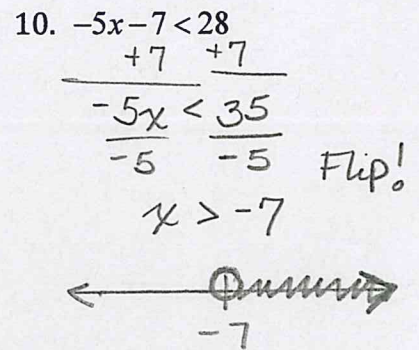 10. -5x-7<28
+7 +7
-5x < 35
-5 -5 Flip!
x > -7
-7